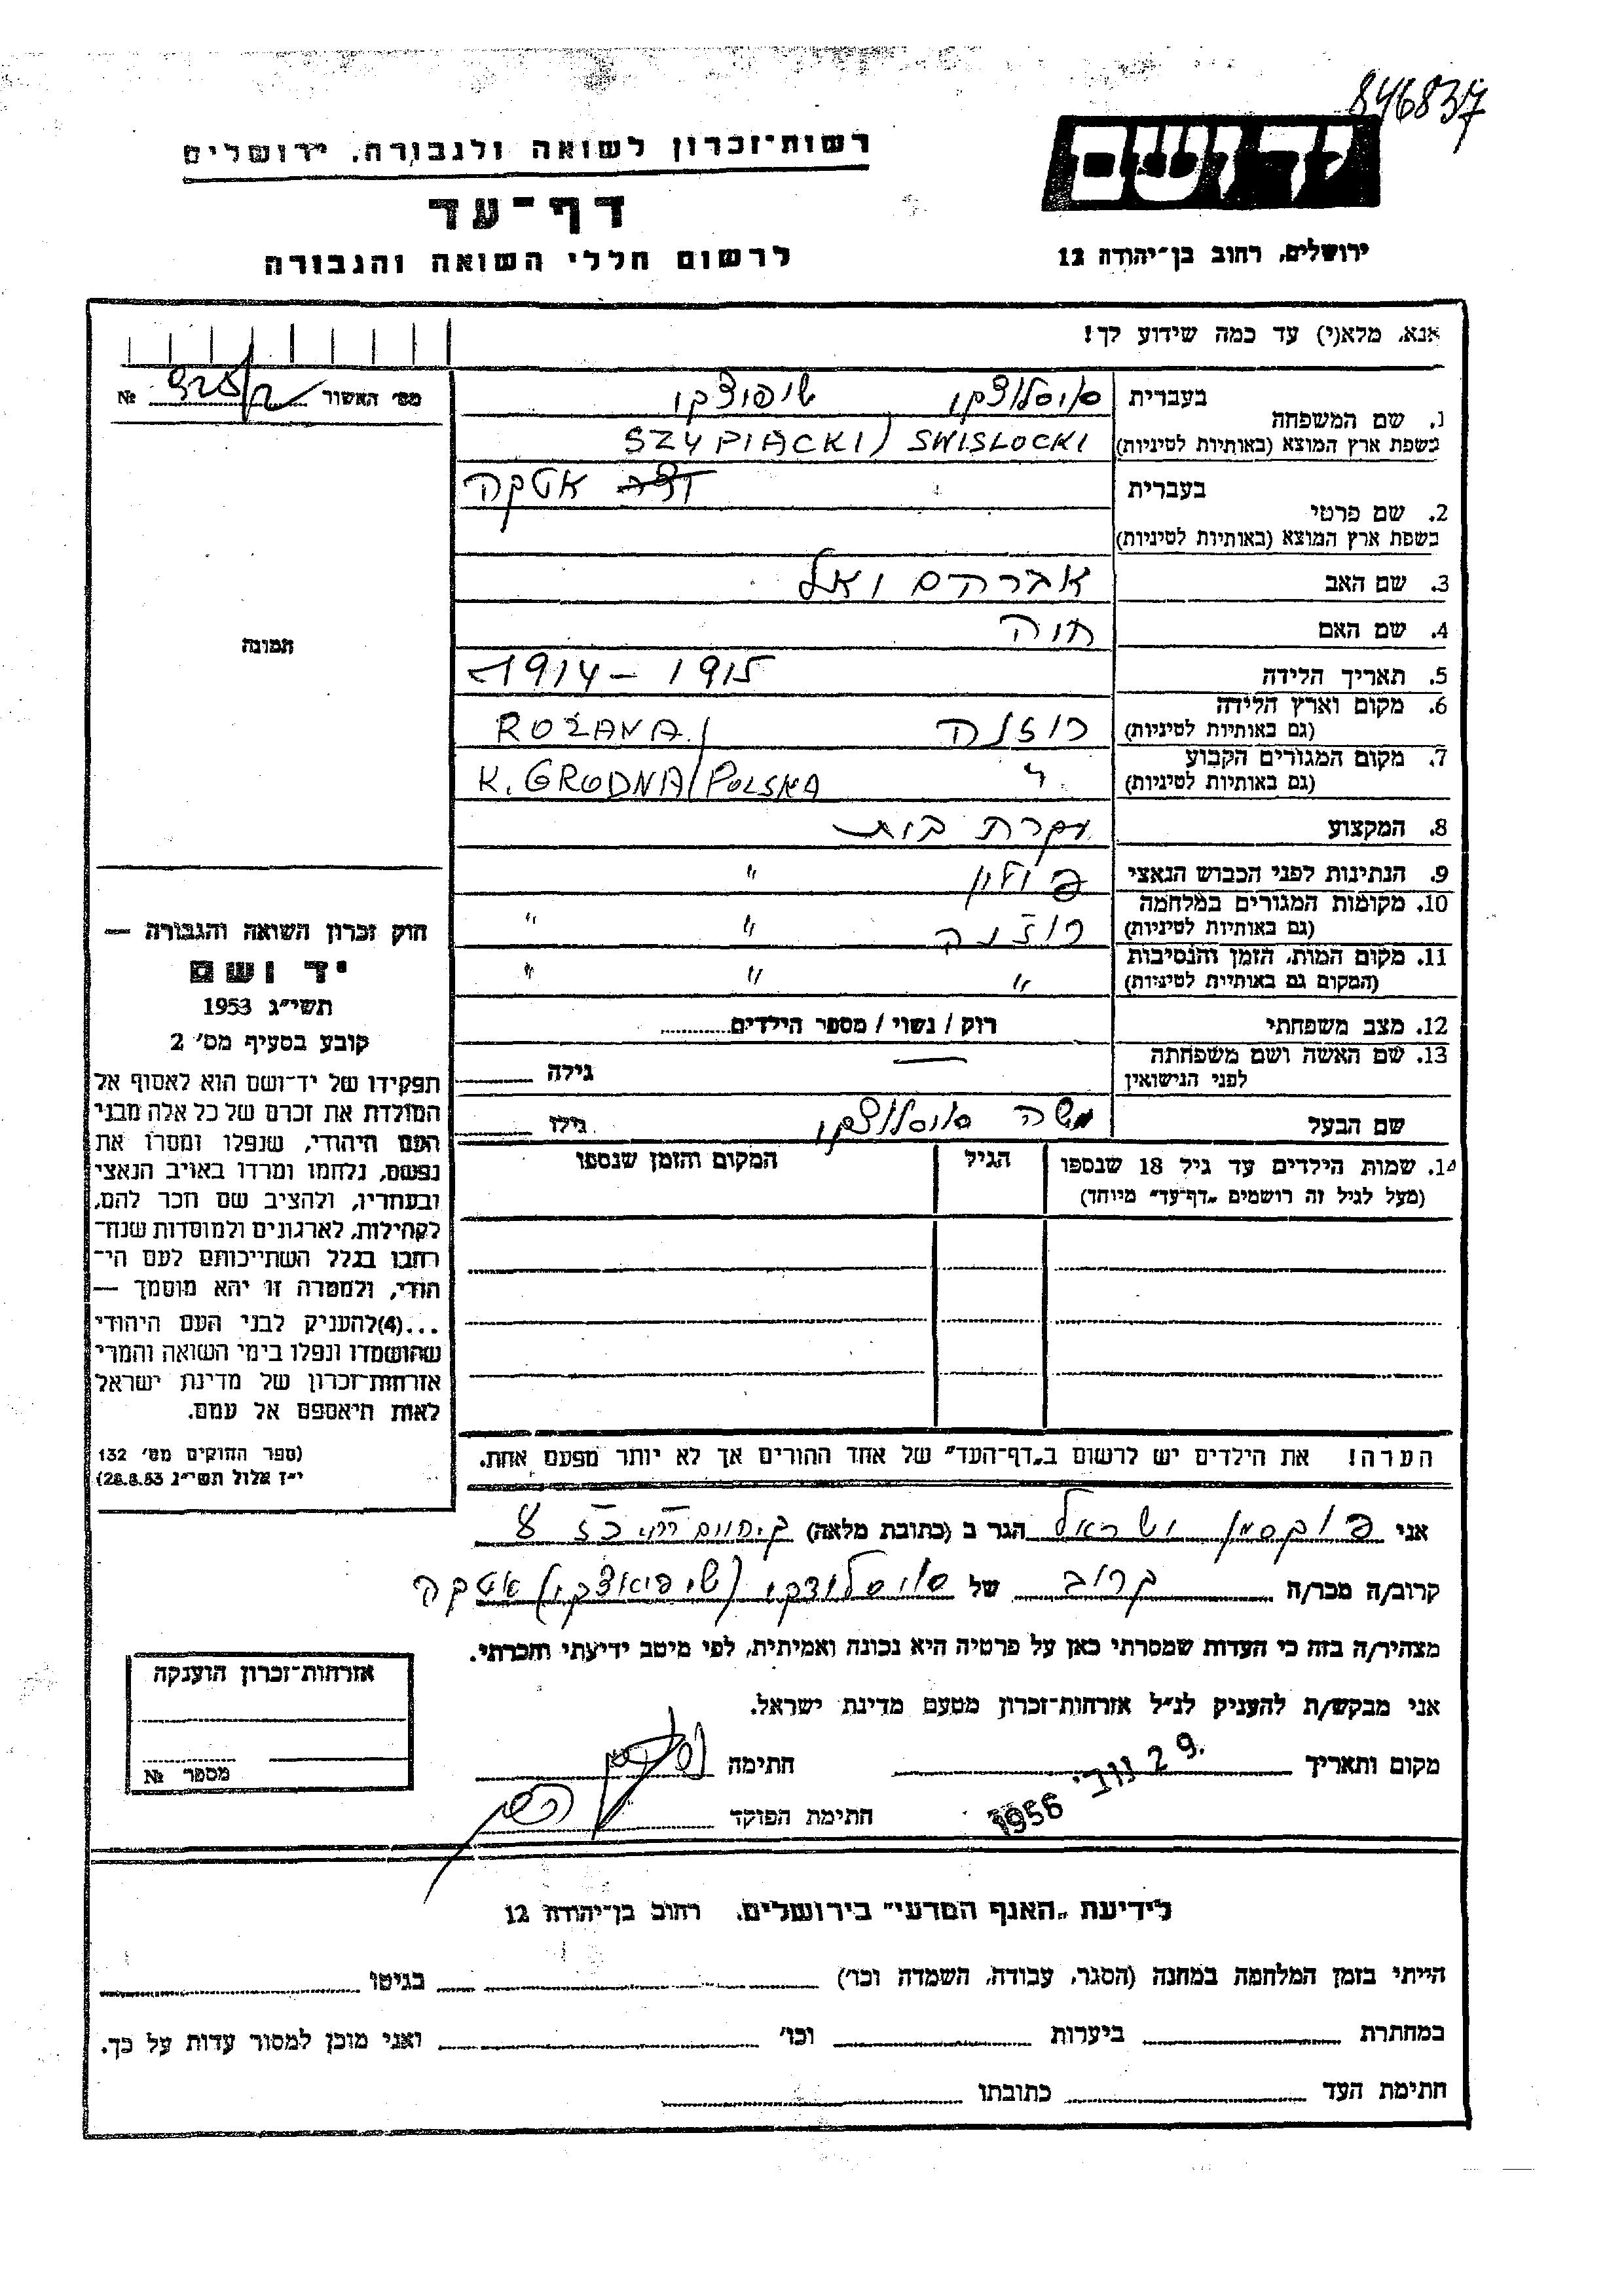 846837
יד ושם
ירושלים, רחוב בן־יהודה 12
רשות־זכרון לשואה ולגבורה, ירושלים
דף־עד
לרשום חללי השואה והגבורה
אנא, מלא(י) עד כמה שידוע לך!
מס׳ האשור № 
1. שם המשפחה
בעברית סויסלוצקי שיפוצקי
בשפת ארץ המוצא (באותיות לטיניות) SZYPIACKI / SWISLOCKI
2. שם פרטי
בעברית אטקה
בשפת ארץ המוצא (באותיות לטיניות)
3. שם האב אברהם יואל
4. שם האם חוה
5. תאריך הלידה 1914 – 1915
6. מקום וארץ הלידה רוזנה ROŻANA /
(גם באותיות לטיניות)
7. מקום המגורים הקבוע K. GRODNA / POLSKA
(גם באותיות לטיניות)
8. המקצוע עקרת בית
9. הנתינות לפני הכבוש הנאצי פולין "
10. מקומות המגורים במלחמה רוזנה " "
(גם באותיות לטיניות)
11. מקום המות, הזמן והנסיבות " " "
(המקום גם באותיות לטיניות)
12. מצב משפחתי רוק / נשוי / מספר הילדים
13. שם האשה ושם משפחתה — גילה
לפני הנישואין
שם הבעל משה סויסלוצקי גילו
14. שמות הילדים עד גיל 18 שנספו הגיל המקום והזמן שנספו
(מעל לגיל זה רושמים „דף־עד״ מיוחד)
הערה! את הילדים יש לרשום ב„דף־העד״ של אחד ההורים אך לא יותר מפעם אחת.
תמונה
חוק זכרון השואה והגבורה —
יד ושם
תשי״ג 1953
קובע בסעיף מס׳ 2
תפקידו של יד־ושם הוא לאסוף אל
המולדת את זכרם של כל אלה מבני
העם היהודי, שנפלו ומסרו את
נפשם, נלחמו ומרדו באויב הנאצי
ובעוזריו, ולהציב שם וזכר להם,
לקהילות, לארגונים ולמוסדות שנח־
רבו בגלל השתייכותם לעם הי־
הודי, ולמטרה זו יהא מוסמך —
...(4)להעניק לבני העם היהודי
שהושמדו ונפלו בימי השואה והמרי
אזרחות־זכרון של מדינת ישראל
לאות היאספם אל עמם.
(ספר החוקים מס׳ 132
י״ז אלול תשי״ג 28.8.53)
אני פוקסמן ישראל הגר ב (כתובת מלאה)
קרוב/ה מכר/ה קרוב של סויסלוצקי (שיפיאצקי) אטקה
מצהיר/ה בזה כי העדות שמסרתי כאן על פרטיה היא נכונה ואמיתית, לפי מיטב ידיעתי והכרתי.
אני מבקש/ת להעניק לנ״ל אזרחות־זכרון מטעם מדינת ישראל.
מקום ותאריך 29 נוב׳ 1956 חתימה
חתימת הפוקד
אזרחות־זכרון הוענקה
מספר №
לידיעת „האגף המדעי״ בירושלים, רחוב בן־יהודה 12
הייתי בזמן המלחמה במחנה (הסגר, עבודה, השמדה וכו׳) בגיטו
במחתרת ביערות וכו׳ ואני מוכן למסור עדות על כך.
חתימת העד כתובתו